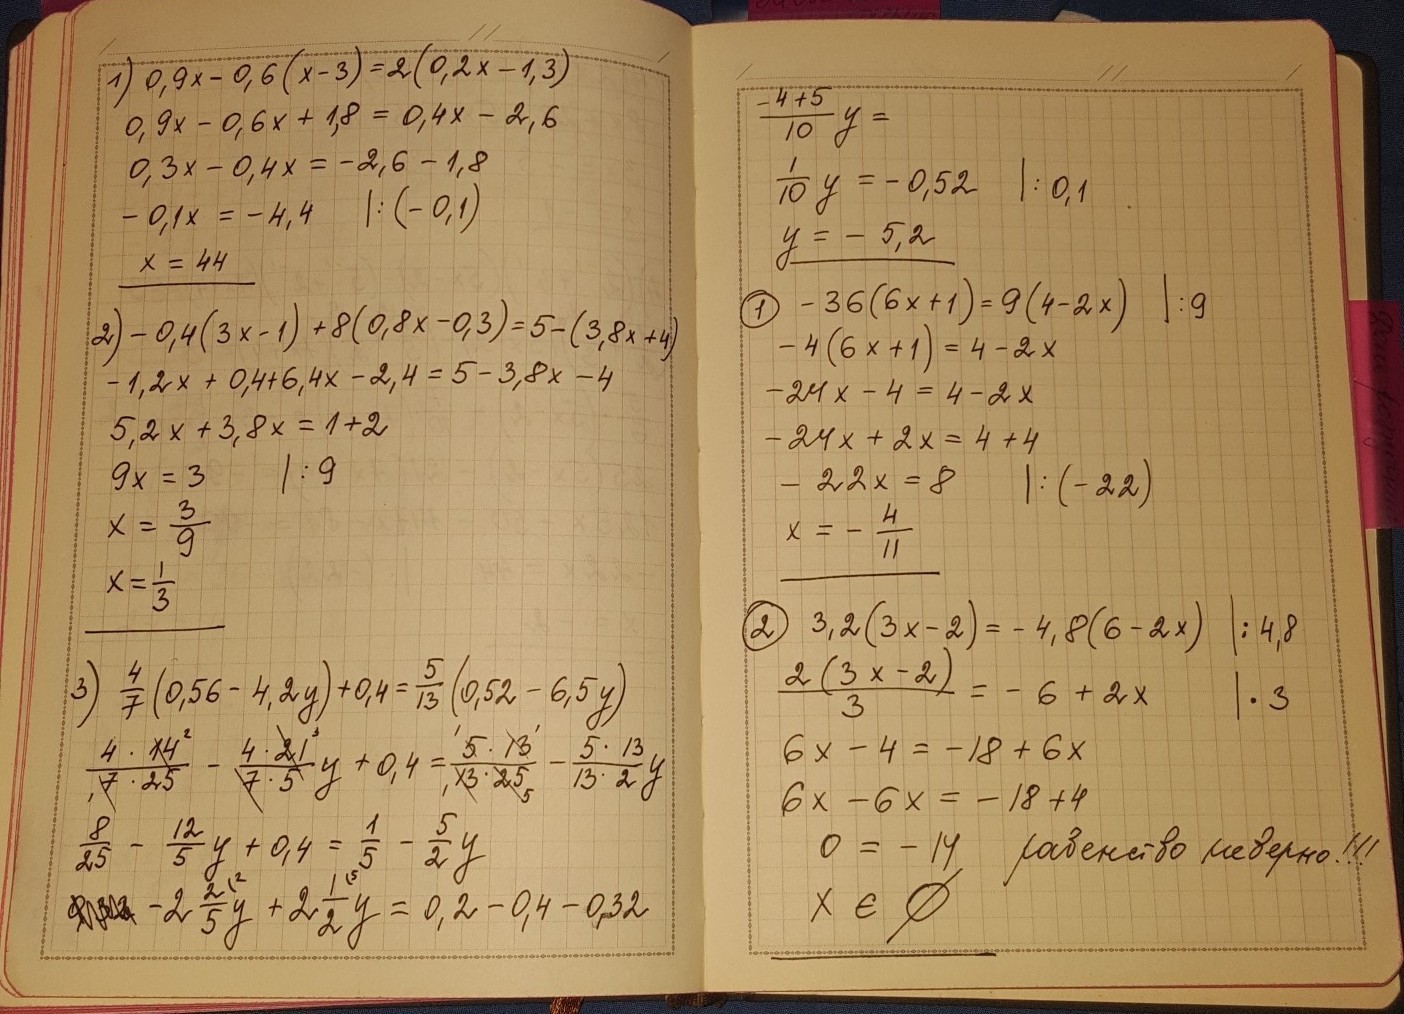 1) 0,9x - 0,6(x-3) = 2(0,2x - 1,3)
0,9x - 0,6x + 1,8 = 0,4x - 2,6
0,3x - 0,4x = -2,6 - 1,8
- 0,1x = -4,4 |:(-0,1)
x = 44
2) -0,4(3x-1) + 8(0,8x - 0,3) = 5-(3,8x+4)
-1,2x + 0,4 + 6,4x - 2,4 = 5 - 3,8x - 4
5,2x + 3,8x = 1+2
9x = 3 |:9
x = 3/9
x = 1/3
3) 4/7 (0,56 - 4,2y) + 0,4 = 5/13 (0,52 - 6,5y)
4·14/7·25 - 4·21/7·5 y + 0,4 = 5·13/13·25 - 5·13/13·2 y
8/25 - 12/5 y + 0,4 = 1/5 - 5/2 y
-2 2/5 y + 2 1/2 y = 0,2 - 0,4 - 0,32
-4+5/10 y =
1/10 y = -0,52 |:0,1
y = - 5,2
1 -36(6x+1) = 9(4-2x) |:9
-4(6x+1) = 4-2x
-24x - 4 = 4-2x
-24x + 2x = 4+4
- 22x = 8 |:(-22)
x = - 4/11
2 3,2(3x-2) = -4,8(6-2x) |:4,8
2(3x-2)/3 = -6 + 2x |·3
6x - 4 = -18 + 6x
6x - 6x = -18 + 4
0 = -14 равенство неверно!!!
x ∈ ∅